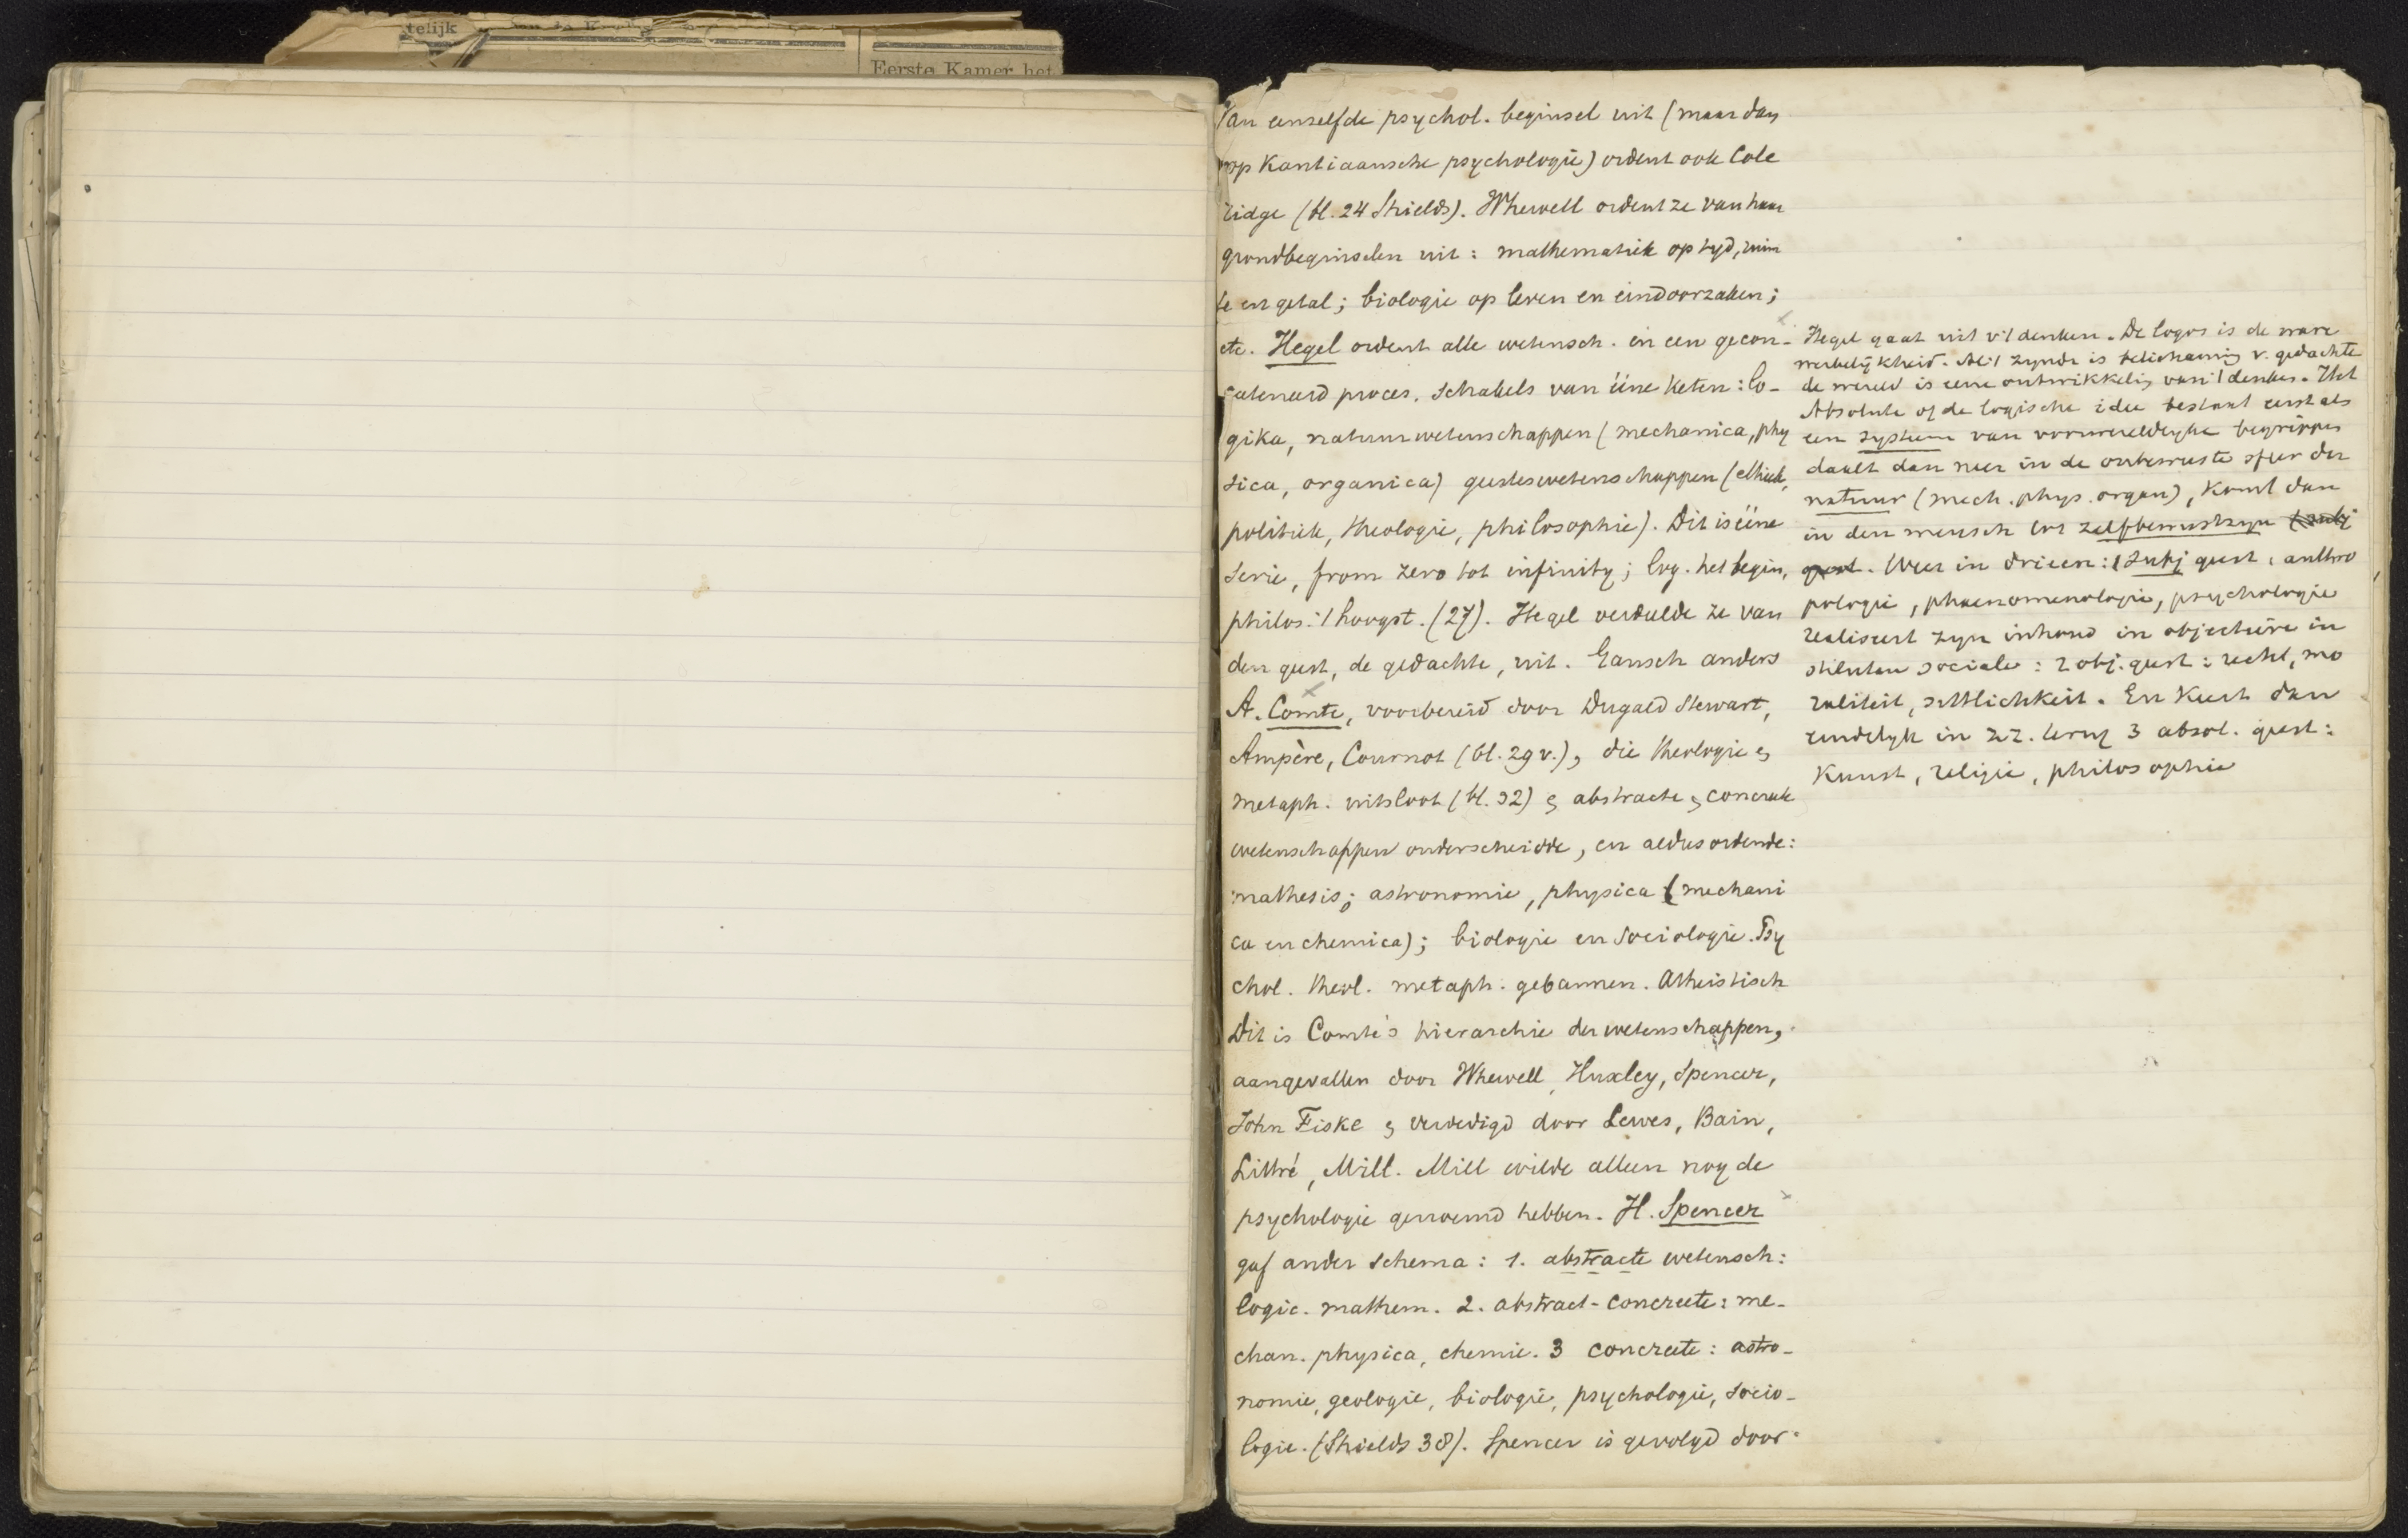 telijk
Eerste Kamer het
Van eenzelfde psychol. beginsel uit (maar dan
op Kantiaansche psychologie) ordent ook Cole
ridge (bl. 24 Shields). Whewell ordent ze van haar
grondbeginselen uit: mathematiek op tyd, ruim
te en getal; biologie op leven en eindoorzaken;
etc. Hegel ordent alle wetensch. in een gecon-
cateneerd proces, schakels van ééne keten: lo-
gika, natuurwetenschappen (mechanica, phy
sica, organica) geesteswetenschappen (ethiek,
politiek, theologie, philosophie). Dit is ééne
serie, from zero tot infinity; log. het begin,
philos. 't hoogst. (27). Hegel verdeelde ze van
den geest, de gedachte, uit. Gansch anders
A. Comte, voorbereid door Dugald Stewart,
Ampère, Cournot (bl. 29 v.), die theologie &
metaph. uitsloot (bl. 32) & abstracte & concrete
wetenschappen onderscheidde, en aldus ordende:
mathesis; astronomie, physica (mechani
ca en chemica); biologie en sociologie. Psy
chol. theol. metaph. gebannen. Atheistisch
Dit is Comte's hierarchie der wetenschappen,
aangevallen door Whewell, Huxley, Spencer,
John Fiske & verdedigd door Lewes, Bain,
Littré, Mill. Mill wilde alleen nog de
psychologie genoemd hebben. H. Spencer
gaf ander schema: 1. abstracte wetensch:
logic. mathem. 2. abstract-concrete: me-
chan. physica, chemie. 3 concrete: astro-
nomie, geologie, biologie, psychologie, socio-
logie. (Shields 38). Spencer is gevolgd door
Hegel gaat uit v 't denken. De logos is de ware
werkelykheid. Al 't zynde is belichaming v. gedachte
de wereld is eene ontwikkeling van 't denken. Het
Absolute of de logische idee bestaat eerst als
een systeem van voorwereldlyke begrippen
daalt dan neer in de onbewuste sfeer der
natuur (mech. phys. organ), komt dan
in den mensch tot zelfbewustzyn (subj
geest. Weer in drieen: 1 subj geest: anthro
pologie, phaenomenologie, psychologie
realiseert zyn inhoud in objectieve in
stituten sociale: 2 obj. geest: recht, mo
raliteit, sittlichkeit. En keert dan
eindelyk in zz. terug 3 absol. geest:
Kunst, religie, philosophie